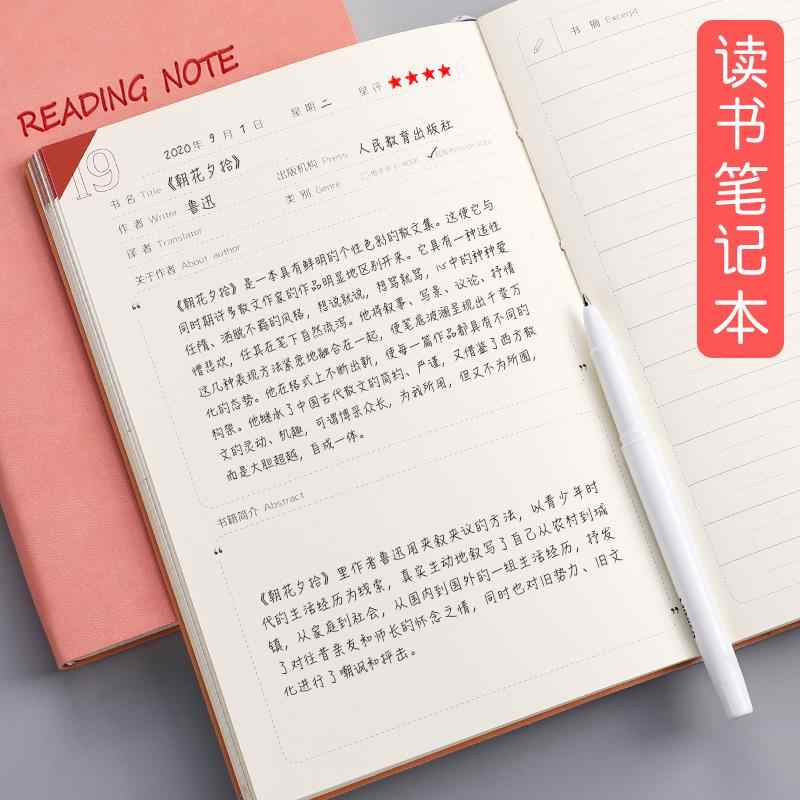 READING NOTE
读书笔记本
19
2020年 9 月 1 日 星期 二 星评 ★★★★
书 名 Title 《朝花夕拾》 出版机构 Press 人民教育出版社
作 者 Writer 鲁迅 类 别 Genre
译 者 Translator
关于作者 About author
《朝花夕拾》是一本具有鲜明的个性色彩的散文集。这使它与
同时期许多散文作家的作品明显地区别开来。它具有一种适性
任情、洒脱不羁的风格，想说就说，想骂就骂，心中的种种爱
憎悲欢，任其在笔下自然流泻。他将叙事、写景、议论、抒情
这几种表现方法紧密地融合在一起，使笔底波澜呈现出千变万
化的态势。他在格式上不断出新，使每一篇作品都具有不同的
构架。他继承了中国古代散文的简约、严谨，又借鉴了西方散
文的灵动、机趣，可谓博采众长，为我所用，但又不为所囿，
而是大胆超越，自成一体。
书籍简介 Abstract
《朝花夕拾》里作者鲁迅用夹叙夹议的方法，以青少年时
代的生活经历为线索，真实生动地叙写了自己从农村到城
镇，从家庭到社会，从国内到国外的一组生活经历，抒发
了对往昔亲友和师长的怀念之情，同时也对旧势力、旧文
化进行了嘲讽和抨击。
书 摘 Excerpt